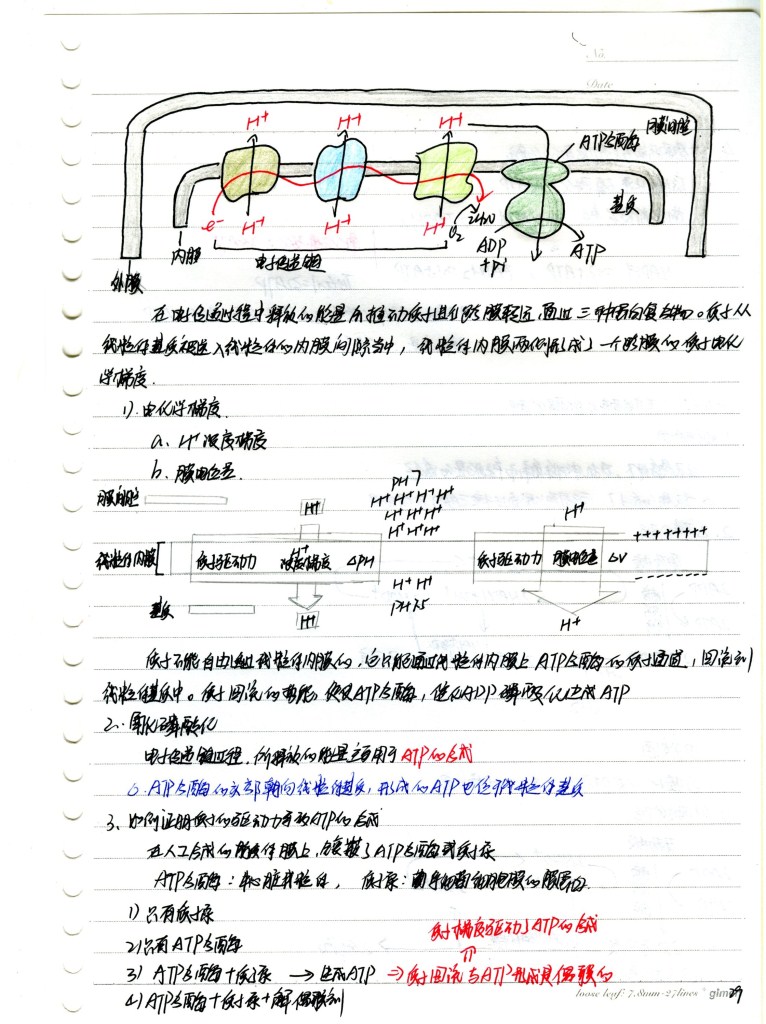 No.
Date
H⁺ H⁺ H⁺ ATP合酶 膜间腔
e⁻ H⁺ H⁺ H⁺ O₂ 2H₂O 基质
内膜 电子传递链 ADP +pi ATP
外膜
在电子传递过程中释放的能量用推动质子进行跨膜转运 通过三种蛋白复合物。质子从
线粒体基质被送入线粒体的内膜间隙当中，线粒体内膜两侧形成了一个跨膜的质子电化
学梯度.
1).电化学梯度.
a. H⁺浓度梯度
b. 膜电位差.
膜间腔 H⁺ PH 7 H⁺
H⁺ H⁺ H⁺ H⁺
H⁺ H⁺ H⁺
H⁺ H⁺ H⁺ ++++++++
线粒体内膜 质子驱动力 H⁺ 浓度梯度 ΔPH 质子驱动力 膜电位差 ΔV
H⁺ H⁺ --------
基质 H⁺ PH 7.5 H⁺
质子不能自由通过线粒体内膜的，它只能通过线粒体内膜上ATP合酶的质子通道，回流到
线粒体基质中。质子回流的势能，使ATP合酶，催化ADP磷酸化生成ATP
2. 氧化磷酸化
电子传递链过程，所释放的能量主要用于ATP的合成
ATP合酶的头部朝向线粒体基质，形成的ATP也位于线粒体基质
3、如何证明质子的驱动力导致ATP的合成
在人工合成的脂质体膜上，嵌入了ATP合酶或质子泵
ATP合酶：牛心脏线粒体， 质子泵： 细菌细胞膜的膜蛋白.
1) 只有质子泵
质子梯度驱动了ATP的合成
2) 只有ATP合酶
3) ATP合酶+质子泵 → 生成ATP ⇒ 质子回流与ATP形成是偶联的
4) ATP合酶+质子泵+解偶联剂
loose leaf: 7.8mm-27lines
29